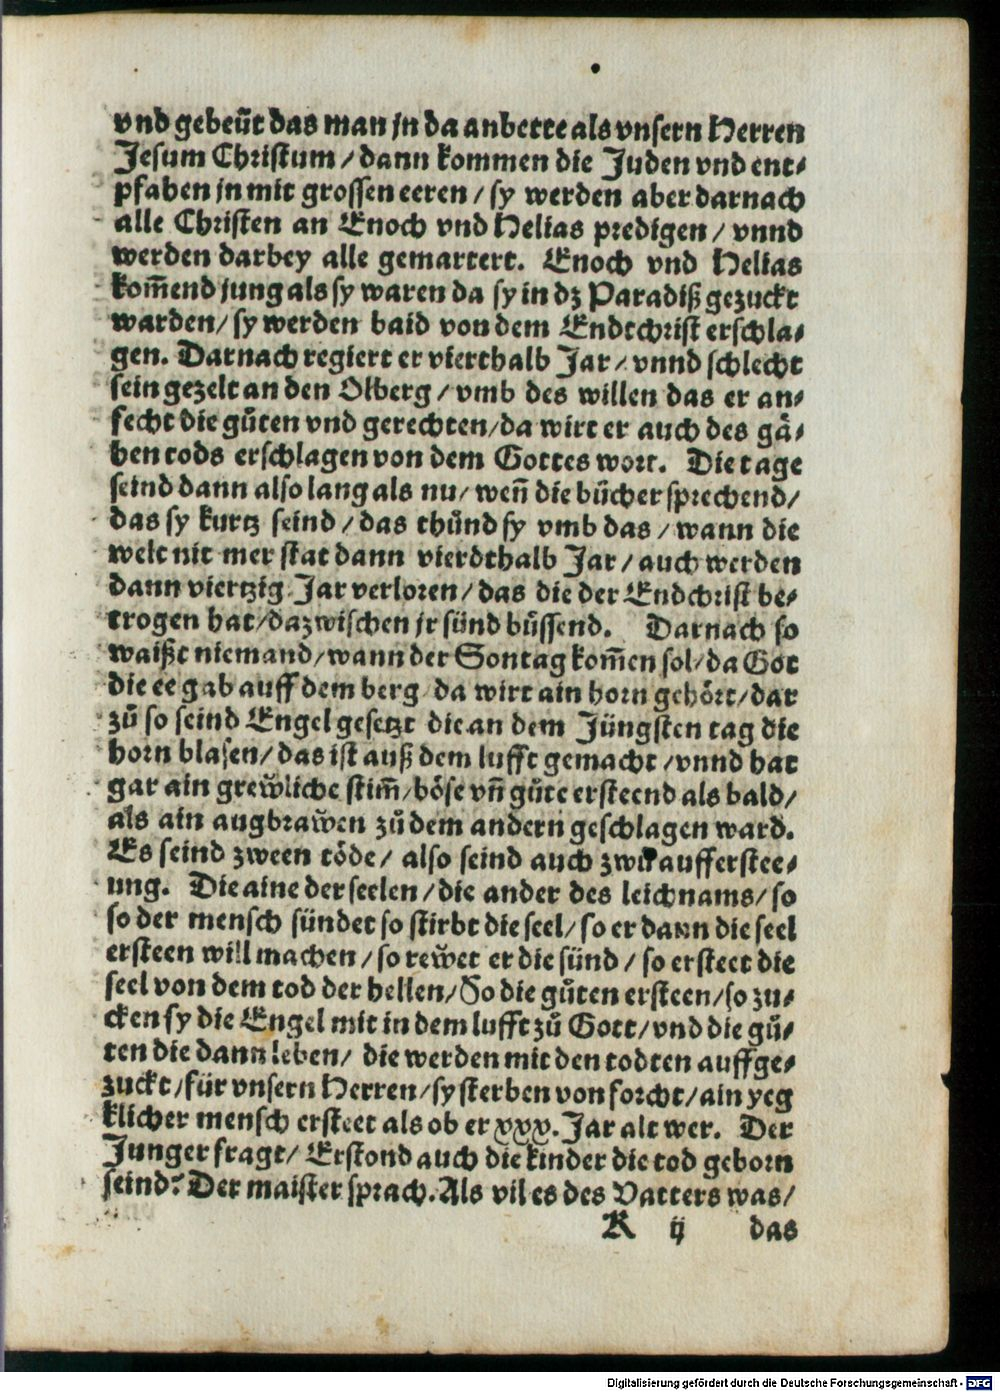 vnd gebeüt das man jn da anbette als vnsern Herren
Jesum Christum / dann kommen die Juden vnd ent⸗
pfahen jn mit grossen eeren / sy werden aber darnach
alle Christen an Enoch vnd Helias predigen / vnnd
werden darbey alle gemartert. Enoch vnd Helias
kom̃end jung als sy waren da sy in dz Paradiß gezuckt
warden / sy werden baid von dem Endtchrist erschla⸗
gen. Darnach regiert er vierthalb Jar / vnnd schlecht
sein gezelt an den Olberg / vmb des willen das er an⸗
fecht die gůten vnd gerechten / da wirt er auch des gå⸗
hen tods erschlagen von dem Gottes wort. Die tage
seind dann also lang als nu / weñ die bücher sprechend /
das sy kurtz seind / das thůnd sy vmb das / wann die
welt nit mer stat dann vierdthalb Jar / auch werden
dann viertzig Jar verloren / das die der Endchrist be⸗
trogen hat / dazwischen jr sünd bůssend. Darnach so
waißt niemand / wann der Sontag kom̃en sol / da Got
die ee gab auff dem berg da wirt ain horn gehört / dar
zů so seind Engel gesetzt die an dem Jüngsten tag die
horn blasen / das ist auß dem lufft gemacht / vnnd hat
gar ain grew̆liche stim̃ / böse vñ gůte ersteend als bald /
als ain augbraw̆en zů dem andern geschlagen ward.
Es seind zween töde / also seind auch zwů aufferstee⸗
ung. Die aine der seelen / die ander des leichnams / so
so der mensch sündet so stirbt die seel / so er dann die seel
ersteen will machen / so rew̆et er die sünd / so ersteet die
seel von dem tod der hellen / So die gůten ersteen / so zu⸗
cken sy die Engel mit in dem lufft zů Gott / vnd die gů⸗
ten die dann leben / die werden mit den todten auffge⸗
zuckt / für vnsern Herren / sy sterben von forcht / ain yeg
klicher mensch ersteet als ob er xxx. Jar alt wer. Der
Junger fragt / Erstond auch die kinder die tod geborn
seind? Der maister sprach. Als vil es des Vatters was /
K ij das
Digitalisierung gefördert durch die Deutsche Forschungsgemeinschaft - DFG